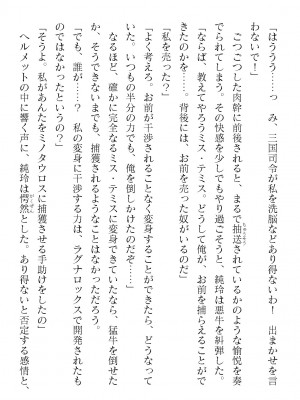 「はううう……っ　み、三国司令が私を洗脳などあり得ないわ！　出まかせを言
わないで！」
　ごつごつした肉幹に前後されると、まるで抽送されているかのような愉悦を奏
でられてしまう。その快感を少しでもやり過ごそうと、純玲は悪牛を糾弾した。
「ならば、教えてやろうミス・テミス。どうして俺が、お前を捕らえることがで
きたのかを……。背後には、お前を売った奴がいるのだ」
「私を売った？」
「よく考えろ。お前が干渉されることなく変身することができたら、どうなって
いた。いつもの半分の力でも、俺を倒しかけたのだぞ……」
　なるほど、確かに完全なるミス・テミスに変身できていたなら、猛牛を倒せた
か、そうできないまでも、捕獲されるようなことはなかっただろう。
「でも、誰が……？　私の変身に干渉する力は、ラグナロックスで開発されたも
のではなかったというの？」
「そうよ。私があんたをミノタウロスに捕獲させる手助けをしたの」
　ヘルメットの中に響く声に、純玲は愕然とした。あり得ないと否定する感情と、